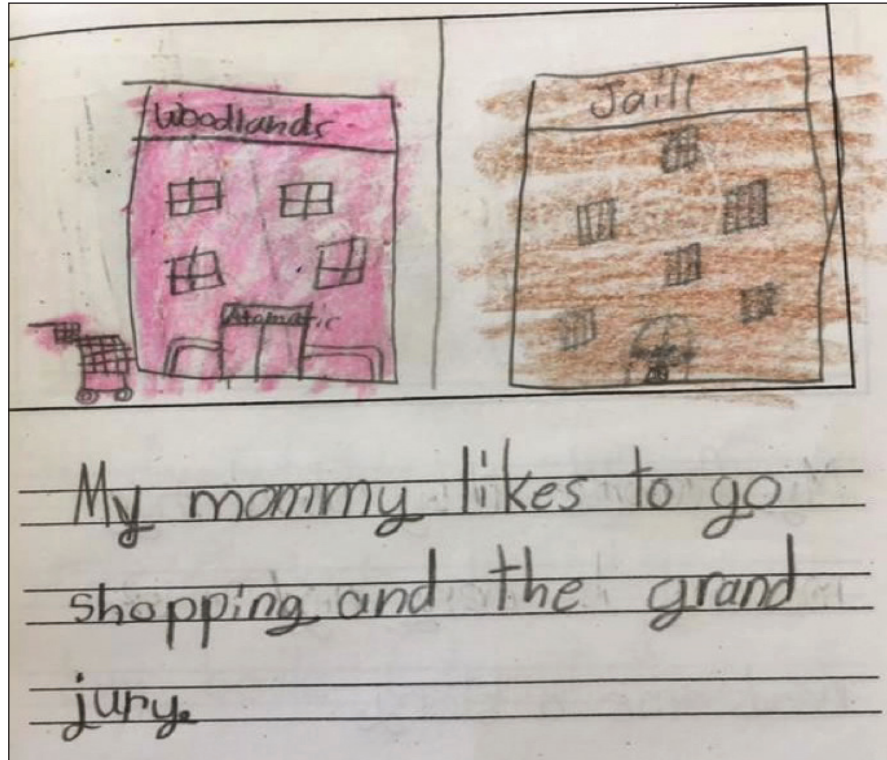 Woodlands
Jaill
Atomatic
My mommy likes to go
shopping and the grand
jury.